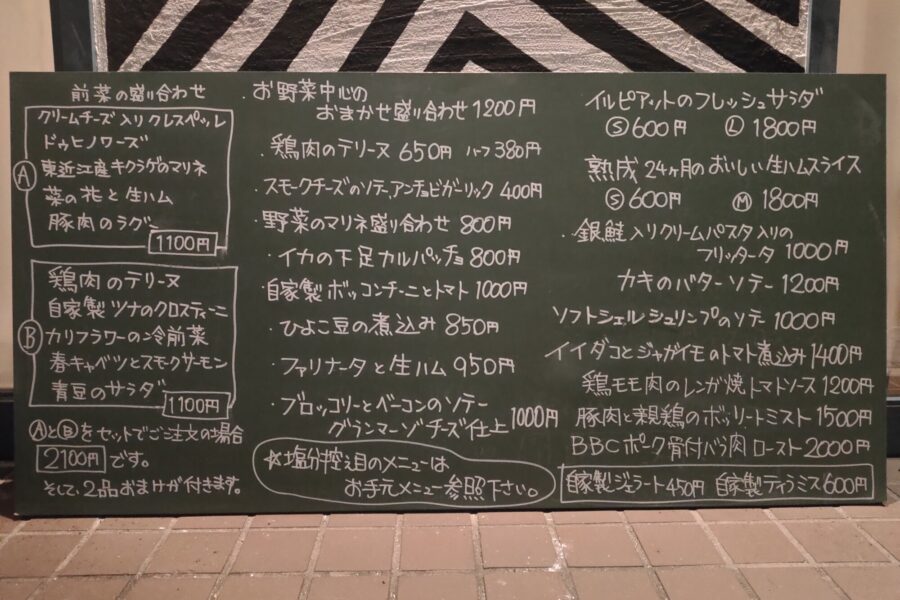 前菜の盛り合わせ
Ⓐ
クリームチーズ入りクレスペッレ
ドゥヒノワーズ
東近江産キクラゲのマリネ
菜の花と生ハム
豚肉のラグー
1100円
Ⓑ
鶏肉のテリーヌ
自家製ツナのクロスティーニ
カリフラワーの冷前菜
春キャベツとスモークサーモン
青豆のサラダ
1100円
ⒶとⒷをセットでご注文の場合
2100円です。
そして、2品おまけが付きます。
・お野菜中心の
おまかせ盛り合わせ 1200円
・鶏肉のテリーヌ 650円 ハーフ380円
・スモークチーズのソテー、アンチョビガーリック 400円
・野菜のマリネ盛り合わせ 800円
・イカの下足カルパッチョ 800円
・自家製ボッコンチーニとトマト 1000円
・ひよこ豆の煮込み 850円
・ファリナータと生ハム 950円
・ブロッコリーとベーコンのソテー
グランマーゾチーズ仕上 1000円
☆塩分控え目のメニューは
お手元メニュー参照下さい。
イルピアットのフレッシュサラダ
Ⓢ600円 Ⓛ1800円
熟成24ヶ月のおいしい生ハムスライス
Ⓢ600円 Ⓜ1800円
・銀鮭入りクリームパスタ入りの
フリッタータ 1000円
カキのバターソテー 1200円
ソフトシェルシュリンプのソテー 1000円
イイダコとジャガイモのトマト煮込み 1400円
鶏モモ肉のレンガ焼トマトソース 1200円
豚肉と親鶏のボッリートミスト 1500円
BBCポーク骨付バラ肉ロースト 2000円
自家製ジェラート450円 自家製ティラミス600円